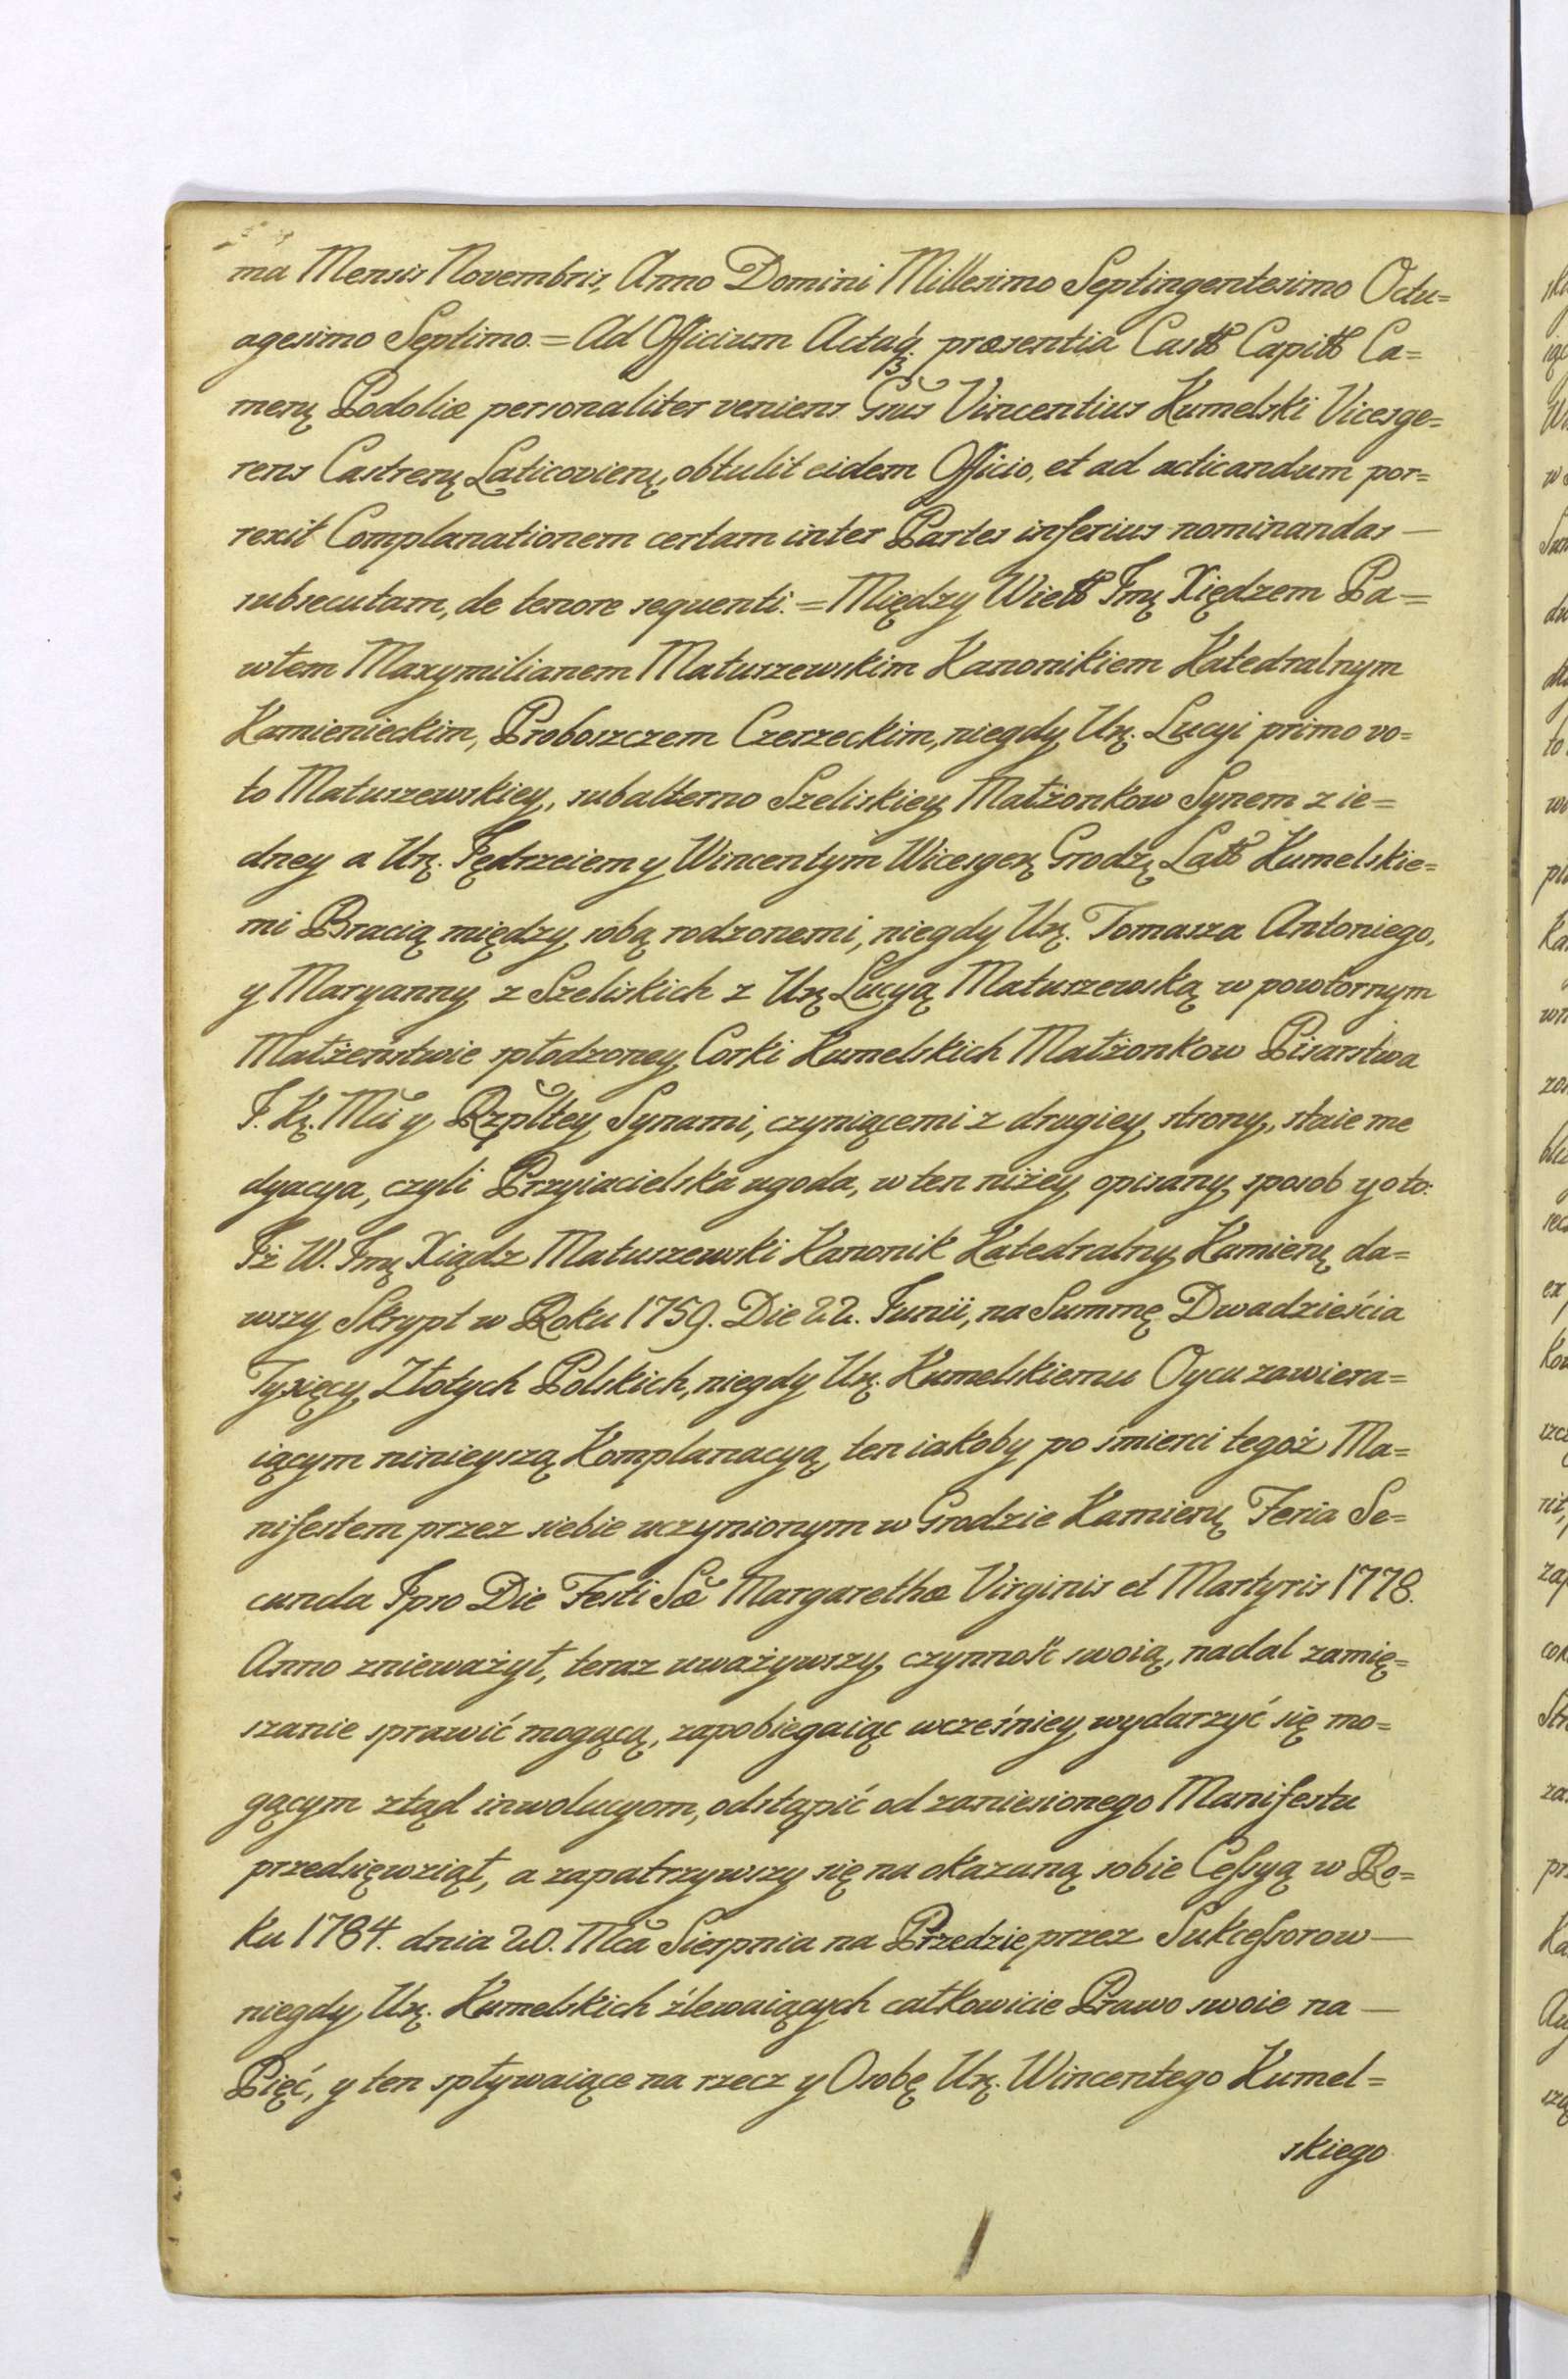 ma Mensis Novembris, Anno Domini Millesimo Septingentesimo Octu=
agesimo Septimo. = Ad Officium Actaq. præsentia Castr Capitl Ca=
menų Podoliæ personaliter veniens Gnus Vincentius Kumelski Vicesge=
rens Castrenų Laticovienų, obtulit eidem Officio, et ad acticandum por=
rexit Complanationem certam inter Partes inferius nominandas —
subsecutam, de tenore sequenti. = Między Wiel Jmų Xiędzem Pa=
włem Maxymilianem Matuszewskim Kanonikiem Katedralnym
Kamienieckim, Proboszczem Czerzeckim, niegdy Ur. Lucyi primo vo=
to Matuszewskiey, subalterno Szeliskiey Małżonkow Synem z ie=
dney a Ur. Jędrzeiem y Wincentym Wicesger Grodz Lat Kumelskie=
mi Bracią między sobą rodzonemi, niegdy Ur. Tomasza Antoniego,
y Maryanny z Szeliskich z Ur Lucyą Matuszewską w powtornym
Małżeństwie spłodzoney Corki Kumelskich Małżonkow Pisarstwa
J. K. Mci y Rzpltey Synami, czyniącemi z drugiey strony, staie me
dyacya, czyli Przyiacielska ugoda, w ten niżey opisany sposob y oto:
Iż W. Jmų Xiądz Matuszewski Kanonik Katedralny Kamienų da=
wszy Skrypt w Roku 1759. Die 22. Junii, na Summę Dwadzieścia
Tysięcy Złotych Polskich, niegdy Ur. Kumelskiemu Oycu zawiera=
iącym ninieyszą Komplanacyą, ten iakoby po śmierci tegoż Ma=
nifestem przez siebie uczynionym w Grodzie Kamienų Feria Se=
cunda Ipso Die Festi Sæ Margarethæ Virginis et Martyris 1778.
Anno znieważył, teraz uważywszy czynność swoią, nadal zamię=
szanie sprawić mogącą, zapobiegaiąc wcześniey wydarzyć się mo=
gącym ztąd inwolucyom, odstąpić od zaniesionego Manifestu
przedsięwziął, a zapatrzywszy się na okazaną sobie Cessyą w Ro=
ku 1784. dnia 20. Mca Sierpnia na Przedzię przez Sukcessorow —
niegdy Ur. Kumelskich źlewaiących całkowicie Prawo swoie na —
Pięć, y ten spływaiące na rzecz y Osobę Ur. Wincentego Kumel=
skiego